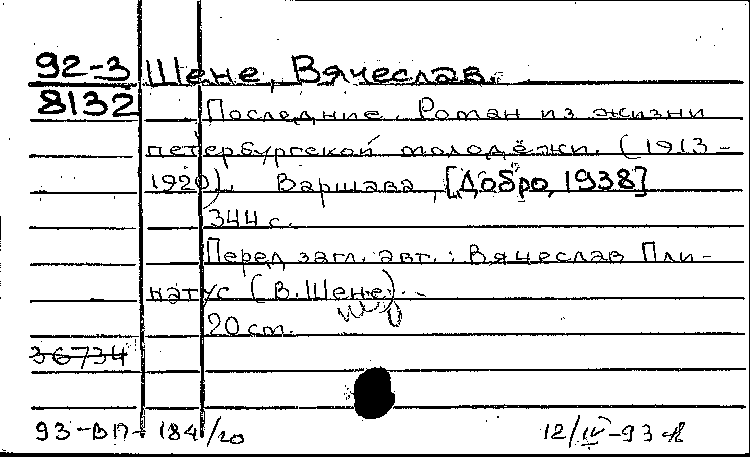 92-3 Шене, Вячеслав.
8132 Последние. Роман из жизни
петербургской молодёжи. (1913-
1920). Варшава, [Добро, 1938]
344 с.
Перед загл. авт.: Вячеслав Пли-
натус (В. Шене).
20 cm.
36734
93-ВП-184/20 12/IV-93